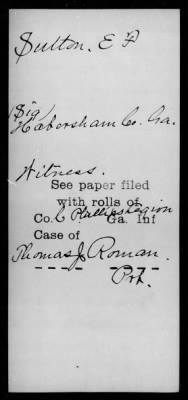 Sutton, E P
Sig
Habersham Co. Ga.
Witness.
See paper filed
with rolls of
Co. C Phillips Legion
Ga. Inf
Case of
Thomas J. Roman.
Pvt.